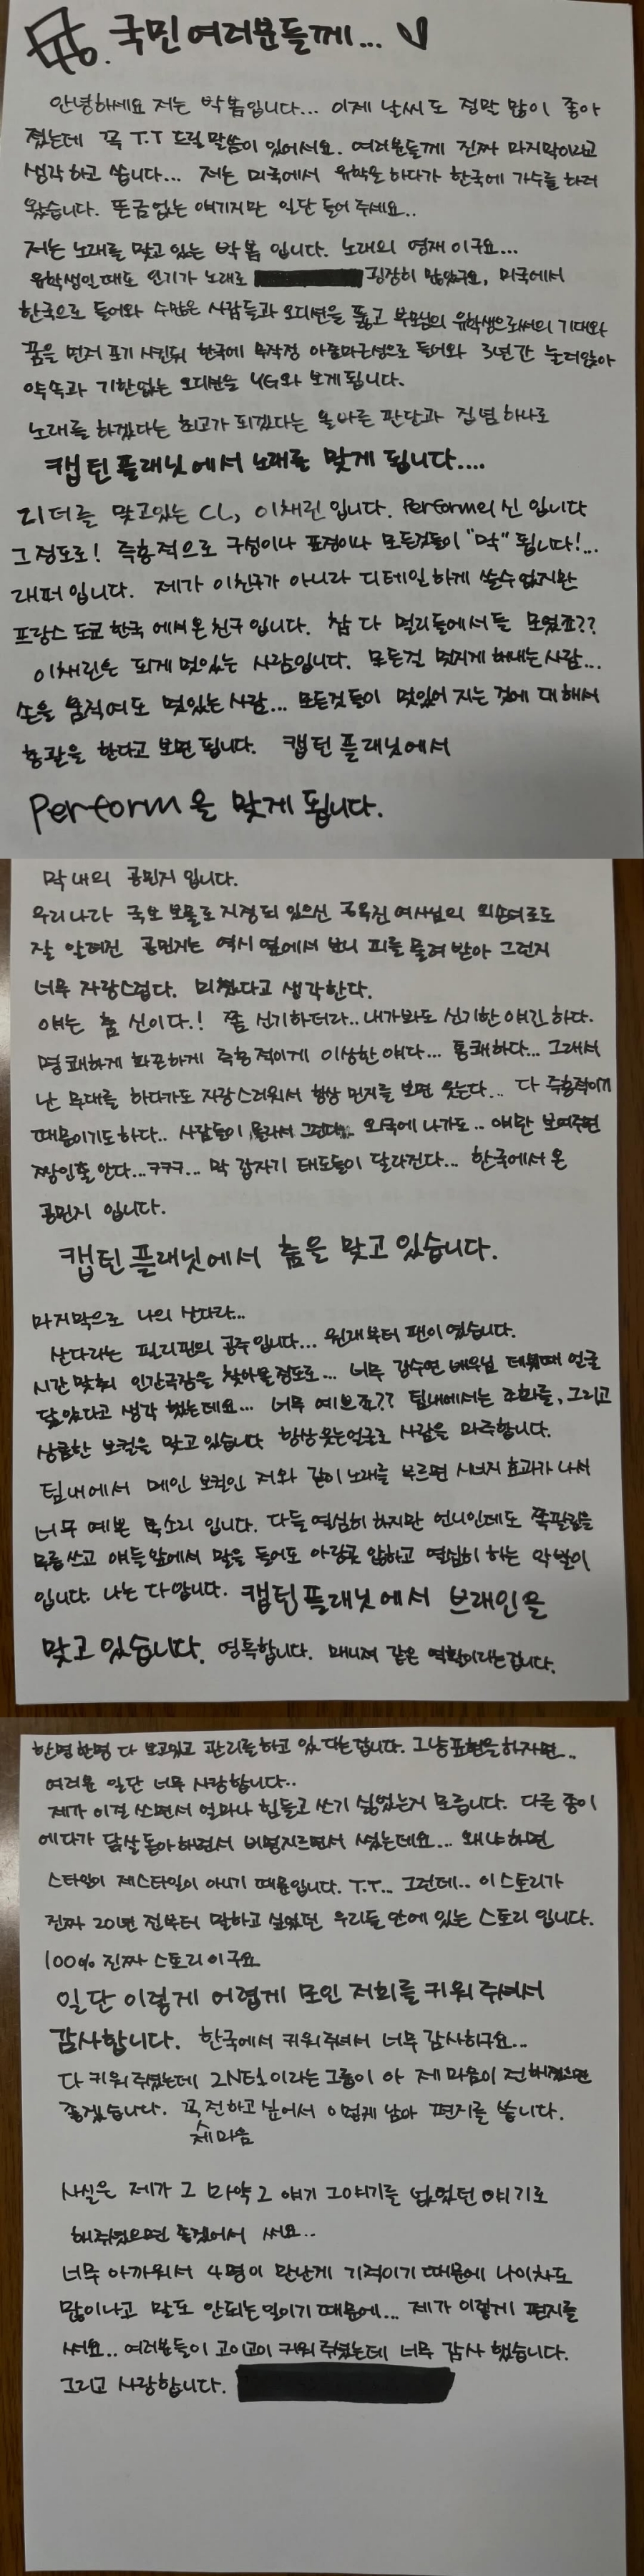 국민여러분들께...
안녕하세요 저는 박봄입니다... 이제 날씨도 정말 많이 좋아
졌는데 꼭 T.T 드릴 말씀이 있어서요. 여러분들께 진짜 마지막이라고
생각하고 씁니다... 저는 미국에서 유학을 하다가 한국에 가수를 하러
왔습니다. 뜬금없는 얘기지만 일단 들어 주세요..
저는 노래를 맞고 있는 박봄 입니다. 노래의 영재이구요...
유학생일때도 인기가 노래로 굉장히 많았구요, 미국에서
한국으로 들어와 수많은 사람들과 오디션을 뚫고 부모님의 유학생으로써의 기대와
꿈을 먼저 포기 시킨뒤 한국에 무작정 아줌마근성으로 들어와 3년간 눌러앉아
약속과 기한없는 오디션을 YG와 보게됩니다.
노래를 하겠다는 최고가 되겠다는 올바른 판단과 집념 하나로
캡틴 플래닛에서 노래를 맞게 됩니다....
리더를 맞고있는 CL, 이채린입니다. Perform의 신 입니다
그정도로! 즉흥적으로 구성이나 표정이나 모든것들이 "막" 됩니다!...
래퍼입니다. 제가 이친구가 아니라 디테일하게 쓸수 없지만
프랑스 도쿄 한국 에서온 친구입니다. 참 다 멀리들에서들 모였죠??
이채린은 되게 멋있는 사람입니다. 모든걸 멋지게 해내는사람...
손을 움직여도 멋있는 사람... 모든것들이 멋있어 지는 것에 대해서
총괄을 한다고 보면 됩니다. 캡틴 플래닛에서
Perform을 맞게 됩니다.
막내의 공민지 입니다.
우리나라 국보 보물로 지정되 있으신 공옥진 여사님의 외손녀로도
잘 알려진 공민지는 역시 옆에서 보니 피를 물려 받아 그런지
너무 자랑스럽다. 미쳤다고 생각한다.
얘는 춤 신이다.! 쫌 신기하더라.. 내가봐도 신기한 얘긴 하다.
명쾌하게 화끈하게 즉흥적이게 이상한 얘다... 통쾌하다... 그래서
난 무대를 하다가도 자랑스러워서 항상 민지를 보면 웃는다... 다 즉흥적이기
때문이기도하다.. 사람들이 몰라서 그런다.. 외국에 나가도.. 얘만 보여주면
짱인줄 안다...ㅋㅋㅋ... 막 갑자기 태도들이 달라진다... 한국에서 온
공민지 입니다.
캡틴 플래닛에서 춤을 맞고 있습니다.
마지막으로 나의 산다라...
산다라는 필리핀의 공주입니다... 원래부터 팬이였습니다.
시간 맞춰 인간극장을 찾아볼정도로... 너무 강수연 배우님 데뷔때 얼굴
닮았다고 생각 했는데요... 너무 예쁘죠?? 팀내에서는 조화를, 그리고
상큼한 보컬을 맞고 있습니다 항상웃는얼굴로 사람을 마주합니다.
팀내에서 메인 보컬인 저와 같이 노래를 부르면 시너지 효과가 나서
너무 예쁜 목소리 입니다. 다들 열심히 하지만 언니인데도 쪽팔림을
무릅쓰고 얘들앞에서 말을 들어도 아랑곳 않하고 열심히 하는 악발이
입니다. 나는 다 압니다. 캡틴플래닛에서 브레인을
맞고있습니다. 영특합니다. 매니져 같은 역활이라는겁니다.
한명한명 다 보고있고 관리를하고 있다는겁니다. 그냥표현을하자면..
여러분 일단 너무 사랑합니다..
제가 이걸 쓰면서 얼마나 힘들고 쓰기 싫었는지 모릅니다. 다른 종이
에다가 닭살 돋아하면서 비명지르면서 썼는데요... 왜냐하면
스타일이 제스타일이 아니기 때문입니다. T.T... 그런데.. 이스토리가
진짜 20년 전부터 말하고 싶었던 우리들 안에 있는 스토리 입니다.
100% 진짜 스토리이구요
일단 이렇게 어렵게 모인 저희를 키워 주셔서
감사합니다. 한국에서 키워주셔서 너무 감사하구요...
다 키워주셨는데 2NE1이라는그룹이 아 제 마음이 전해졌으면
좋겠습니다. 꼭 전하고 싶어서 이렇게 남아 편지를 씁니다.
제마음
사실은 제가 그 마약그 얘기 그얘기를 없었던 얘기로
해주셨으면 좋겠어서 써요..
너무 아까워서 4명이 만난게 기적이기 때문에 나이차도
많이나고 말도 안되는일이기 때문에... 제가 이렇게 편지를
써요.. 여러분들이 고이고이 키워주셨는데 너무 감사 했습니다.
그리고 사랑합니다.